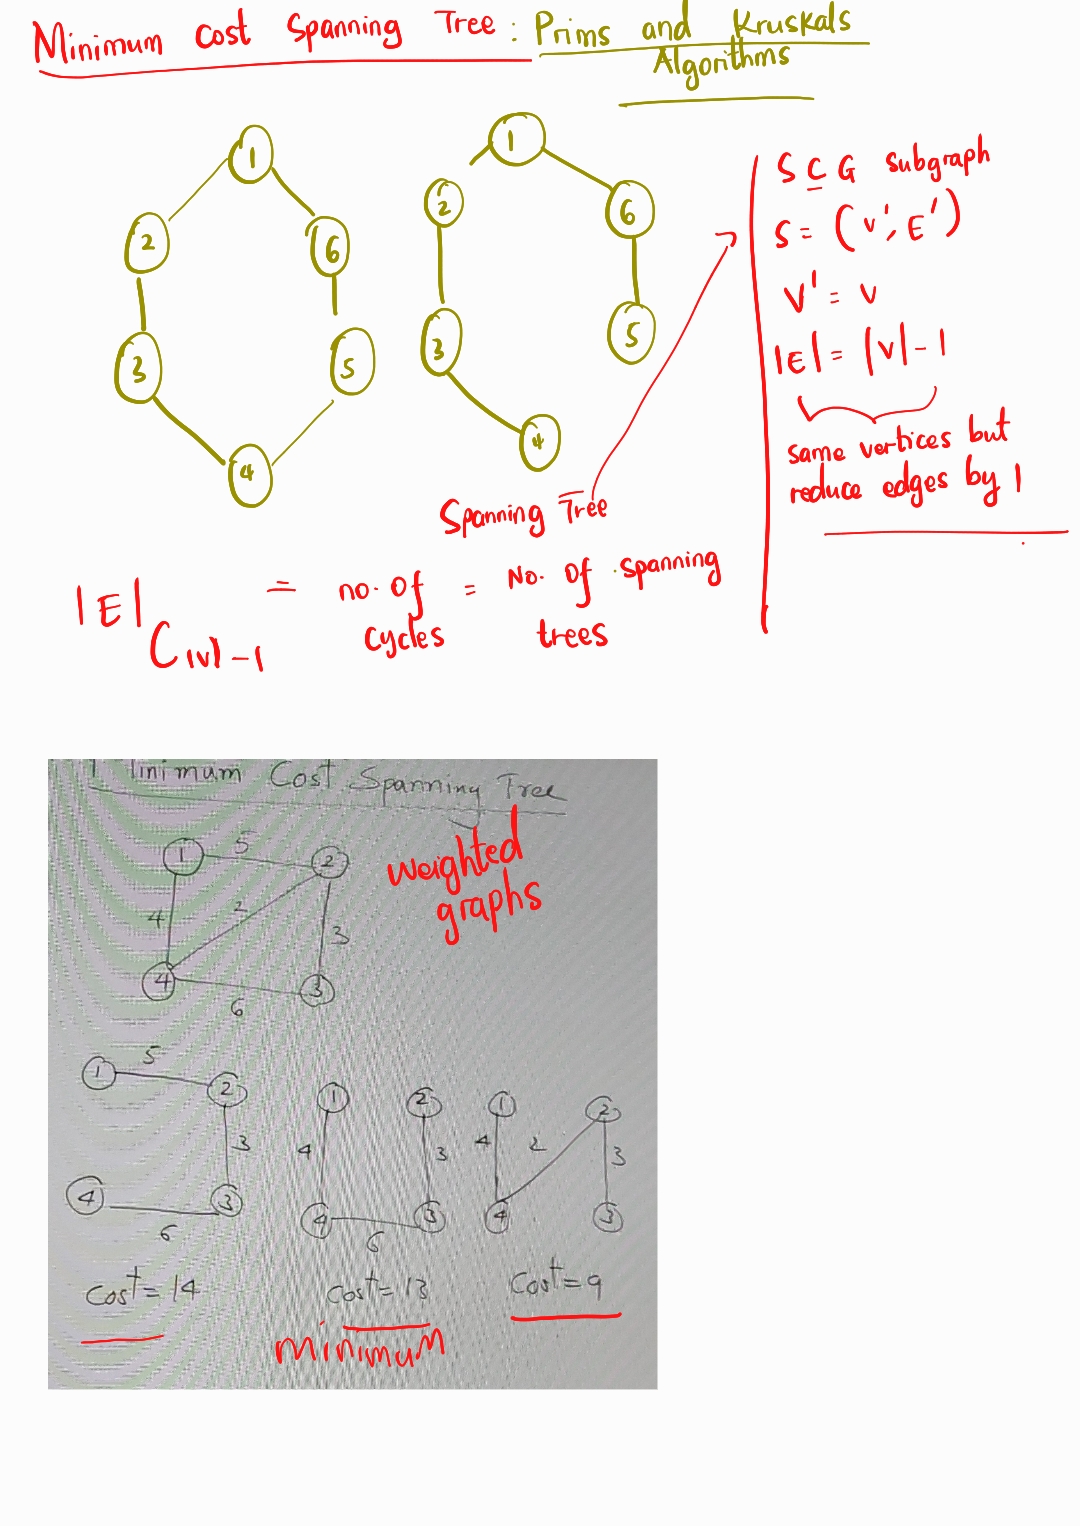 Minimum Cost Spanning Tree : Prims and Kruskals
Algorithms
1
2
6
3
5
4
1
2
6
3
5
4
Spanning Tree
S ⊆ G subgraph
S = (V', E')
V' = V
|E| = |V| - 1
same vertices but
reduce edges by 1
|E| C |V| - 1 = no. of cycles = No. of spanning trees
Minimum Cost Spanning Tree
weighted
graphs
1 5 2
4 2 3
4 6 3
1 5 2
3
4 6 3
Cost = 14
1 2
4 3
4 6 3
Cost = 13
1 2
4 2 3
4 3
Cost = 9
minimum